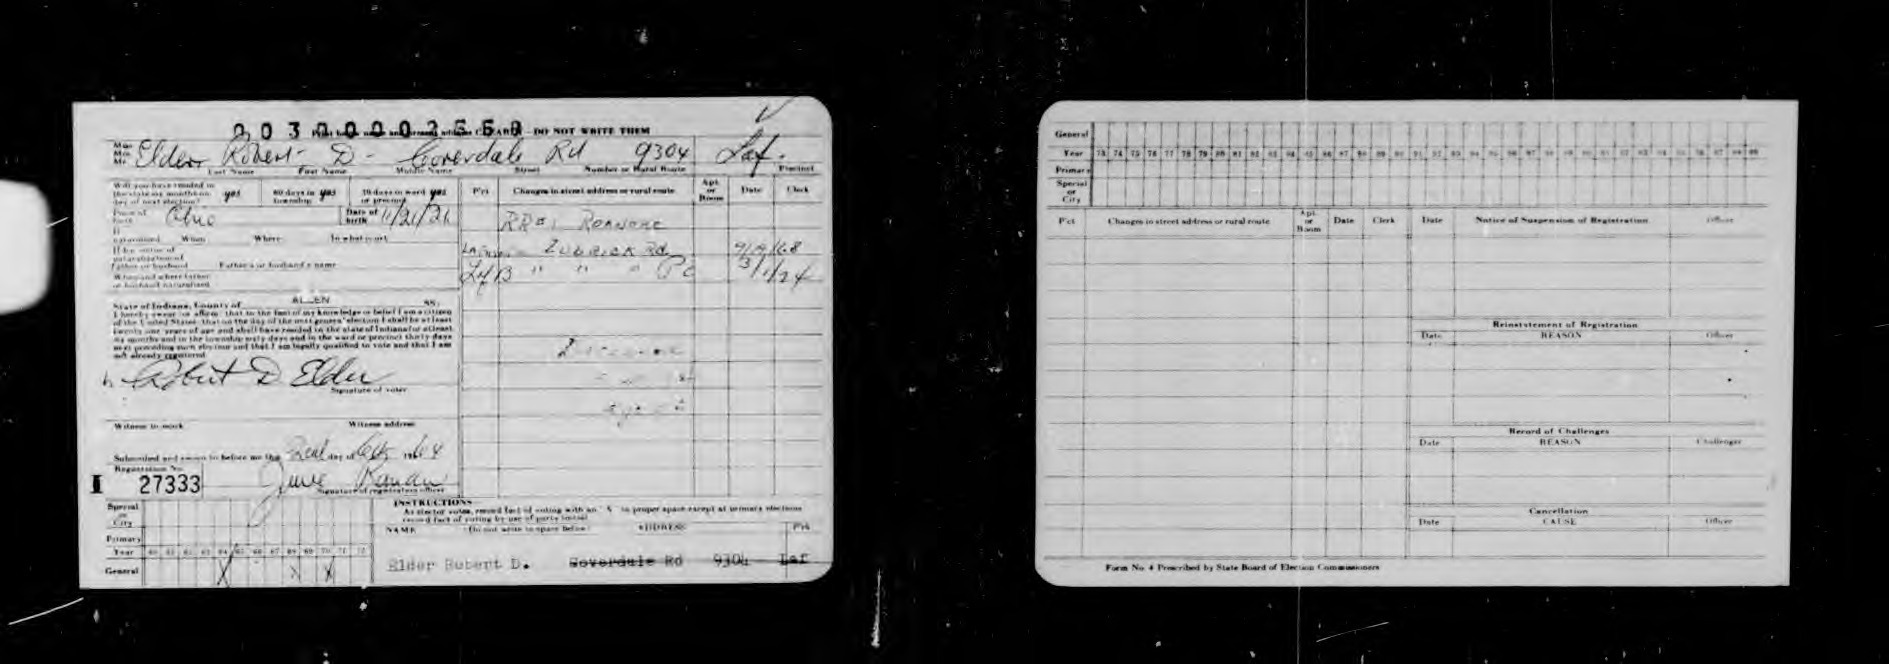 DO NOT WRITE THEM
Mrs.
Mr. Elder Robert D - Coverdale Rd 9304 Laf.
Last Name First Name Middle Name Street Number or Rural Route Precinct
Will you have resided in the state six months on day of next election? yes 60 days in township yes 30 days in ward or precinct yes
P'ct Changes in street address or rural route Apt. or Room Date Clerk
Place of birth Ohio Date of birth 11/21/21
RR#1 ROANOKE
If naturalized When Where In what court
ZUBRICK Rd 9/9/68
Father's or husband's name
Laf B " " " PC 3/1/74
When and where father or husband naturalized
State of Indiana, County of ALLEN SS:
I hereby swear (or affirm) that to the best of my knowledge or belief I am a citizen
of the United States; that on the day of the next general election I shall be at least
twenty one years of age and shall have resided in the state of Indiana for at least
six months and in the township sixty days and in the ward or precinct thirty days
next preceding such election and that I am legally qualified to vote and that I am
not already registered
Robert D Elder
Signature of voter
Witness to mark Witness address
Subscribed and sworn to before me this 2nd day of Oct 1964
Registration No.
I 27333
June
Signature of registration officer
INSTRUCTIONS
As elector votes, record fact of voting with an "X" in proper space except at primary elections
record fact of voting by use of party initial
NAME (Do not write in space below) ADDRESS P'ct
Special or City
Primary
Year 60 61 62 63 64 65 66 67 68 69 70 71 72
General X X X
Elder Robert D. Coverdale Rd 9304 Laf
General
Year 73 74 75 76 77 78 79 80 81 82 83 84 85 86 87 88 89 90 91 92 93 94 95 96 97 98 99
Primary
Special or City
P'ct Changes in street address or rural route Apt. or Room Date Clerk
Date Notice of Suspension of Registration Officer
Reinstatement of Registration
Date REASON Officer
Record of Challenges
Date REASON Challenger
Cancellation
Date CAUSE Officer
Form No. 4 Prescribed by State Board of Election Commissioners